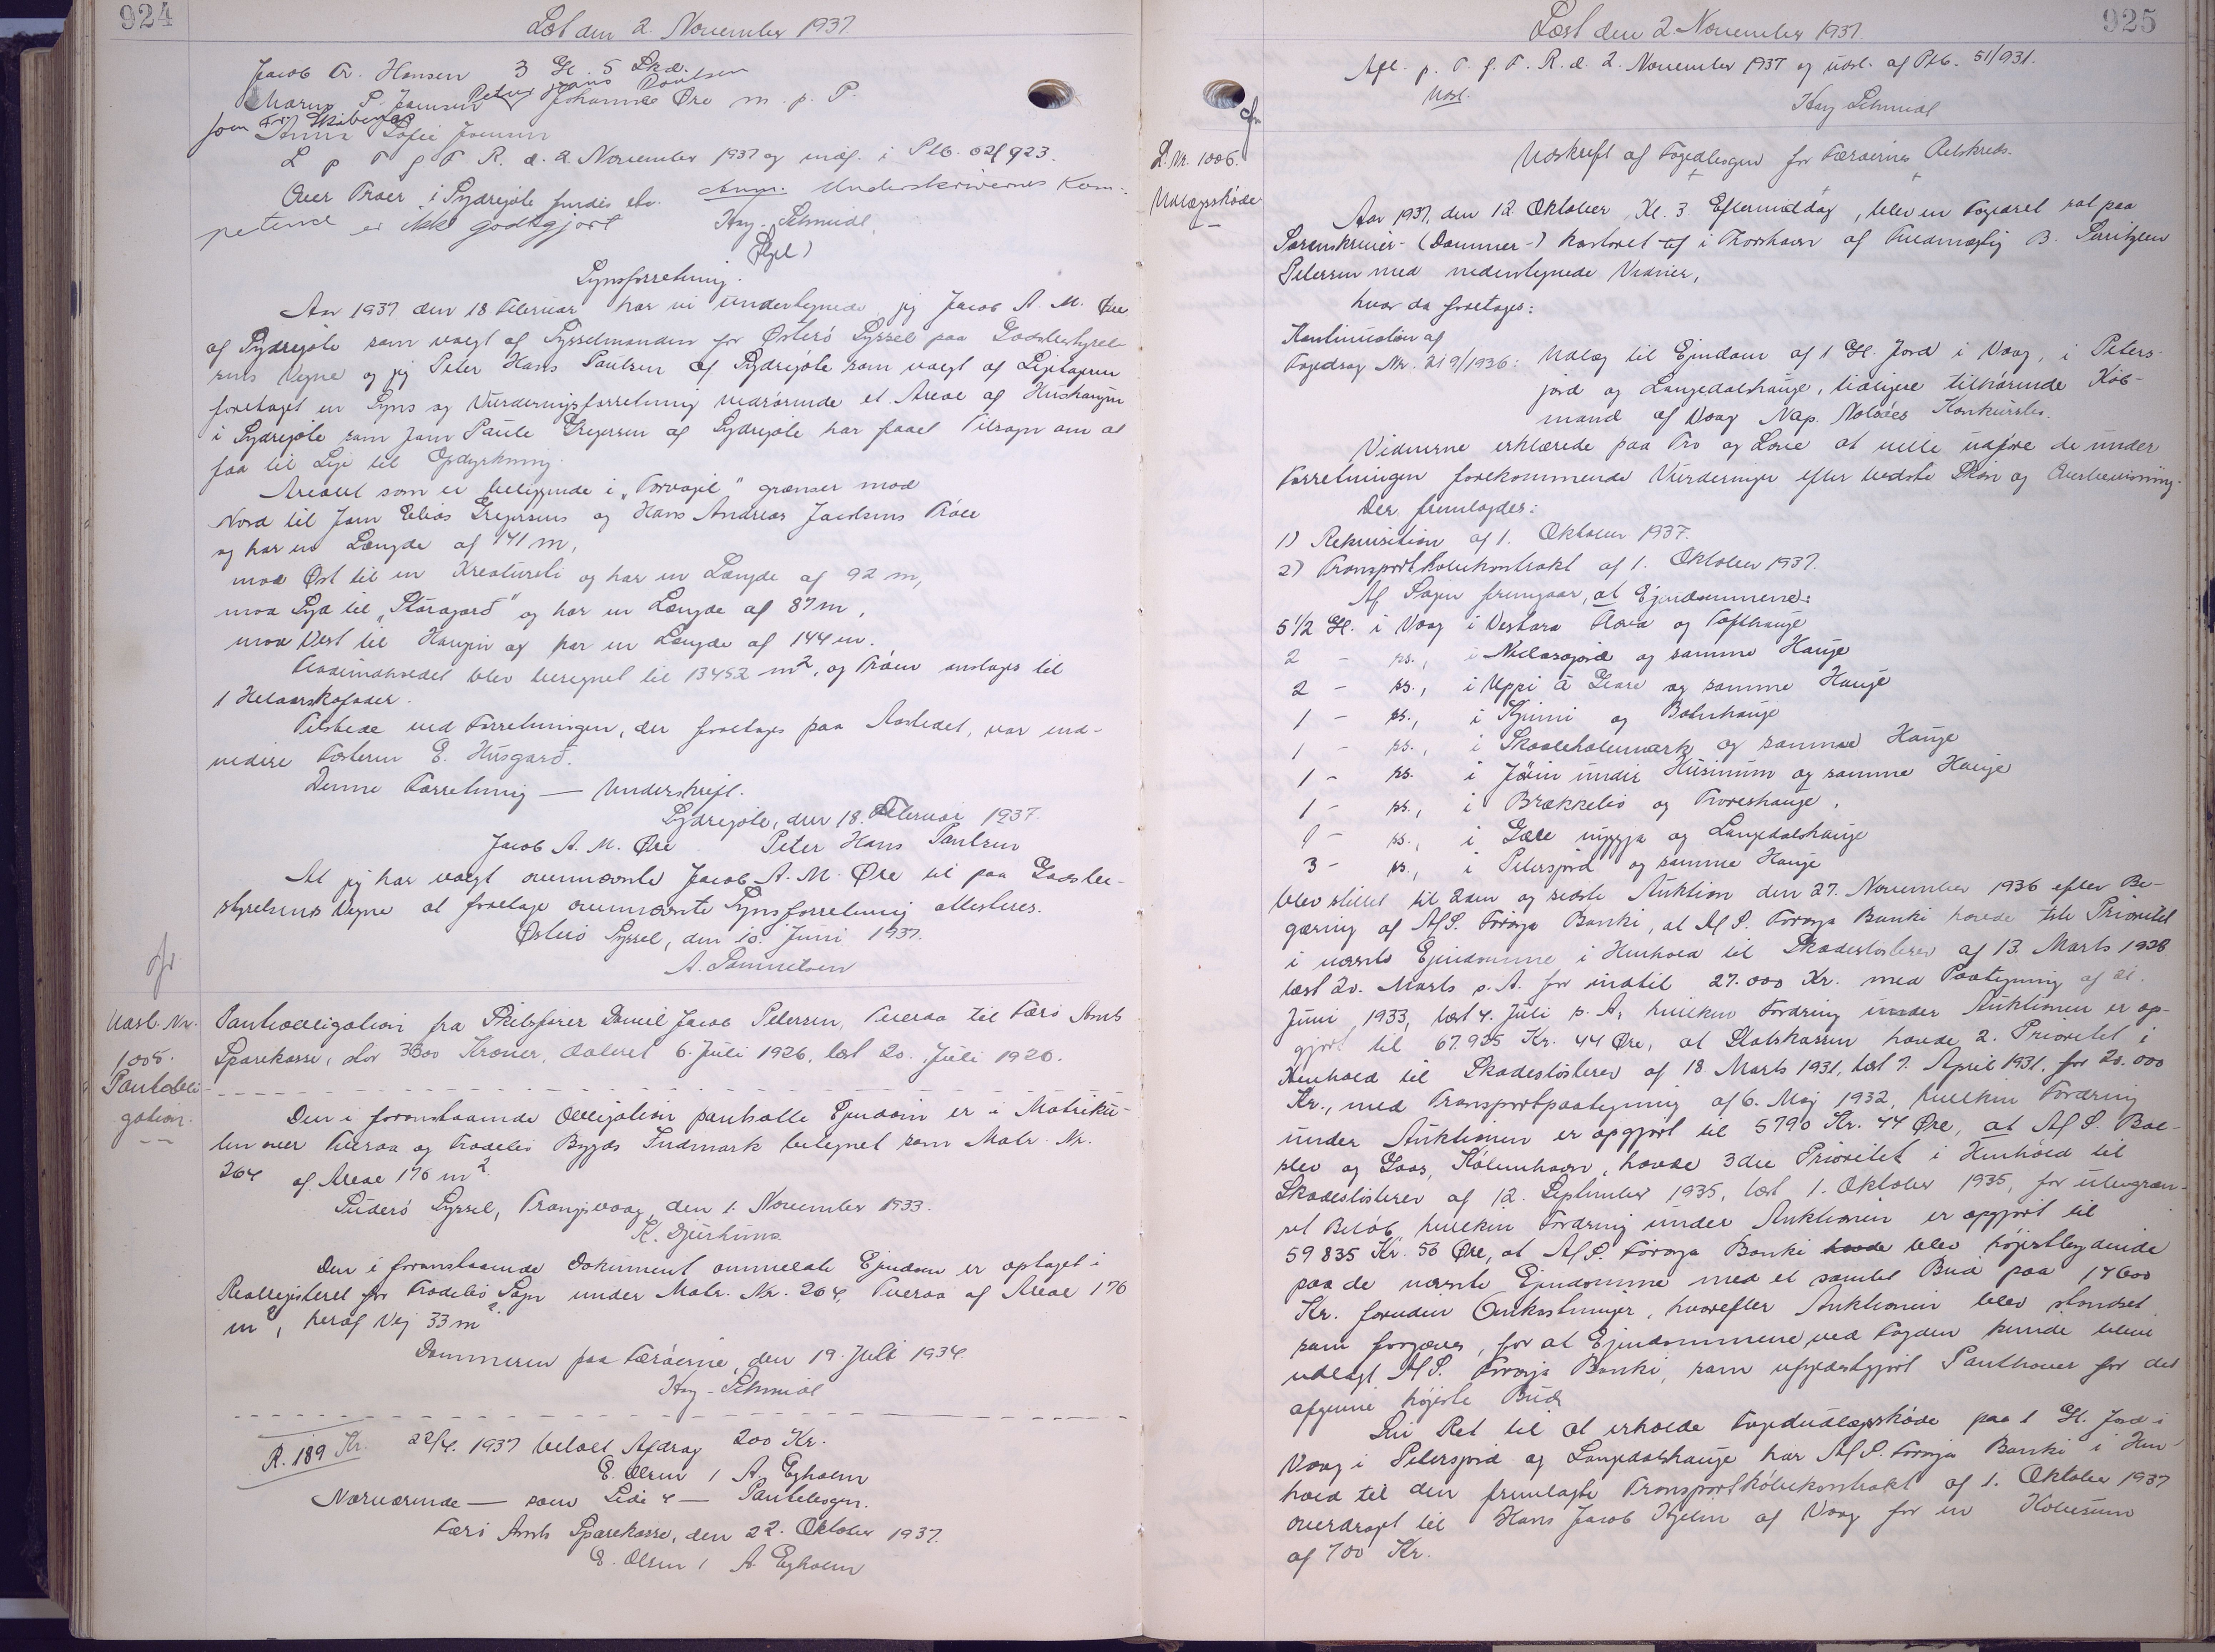 924
Læst den 2. November 1937.
Jacob Fr. Hansen 3 Gl. 5 Skd.
Marius P. Joensen Peter Hans Poulsen Johannes Øre m. p. P.
Anna Sofie Joensen
L p T g T R. d. 2. November 1937 og indf. i Ptb.
Over Traer i Sydrejøte findes etc. Anm. Underskrivernes Kom-
petence er ikke godtgjort Hay-Schmidt
Synsforretning.
Aar 1937 den 18 Februar har vi undertegnede, jeg Jacob A. M. Øre
af Sydrejøte som valgt af Sysselmanden for Østerø Syssel paa Godsbestyrel-
sens Vegne og jeg Peter Hans Paulsen af Sydrejøte som valgt af Lejtageren
foretaget en Syns og Vurderingsforretning vedrørende et Areal af Hushaugen
i Sydrejøte som Joen Paule Gregersen af Sydrejøte har faaet Tilsagn om at
faa til Leje til Opdyrkning.
Arealet som er beliggende i "Torvagil" grænser mod
Nord til Joen Elias Gregersens og Hans Andreas Jacobsens Tråer
og har en Længde af 141 m,
mod Øst til en Kreatursti og har en Længde af 92 m,
mod Syd til "Stóragarð" og har en Længde af 87 m,
mod Vest til Haugin og har en Længde af 144 m.
Fladeindholdet blev beregnet til 13452 m², og Tråen ansloges til
1 Helaarskofoder.
Tilstede ved Forretningen, der foretoges paa Aastedet, var end-
videre Fosteren E. Husgarð.
Denne Forretning — Underskrift.
Sydrejøte, den 18. Februar 1937.
Jacob A. M. Øre Peter Hans Paulsen
At jeg har valgt ovennævnte Jacob A. M. Øre til paa Godsbe-
styrelsens Vegne at foretage ovennævnte Synsforretning attesteres.
Østerø Syssel, den 10. Juni 1937.
A. Samuelsen
Uasl. Nr.
1005.
Pantobli-
gation.
Pantobligation fra Skibsfører Daniel Jacob Petersen, Tveraa til Færø Amts
Sparekasse, stor 3300 Kroner, dateret 6. Juli 1926, læst 20. Juli 1926.
Den i foranstaaende Obligation pantsatte Ejendom er i Matriku-
len over Tveraa og Frodebø Bygds Indmark betegnet som Matr. Nr.
264 af Areal 176 m².
Suderø Syssel, Trangisvaag, den 1. November 1933.
K. Djurhuus
Den i foranstaaende Dokument ommeldte Ejendom er optaget i
Realregisteret for Frodebø Sogn under Matr. Nr. 264, Tveraa af Areal 176
m², heraf Vej 33 m².
Dommeren paa Færøerne, den 19. Juli 1934.
Hay-Schmidt
R. 189 Kr. 22/4. 1937 betalt Afdrag 200 Kr.
E. Olsen / A. Egholm
Nærværende — som Side 4 — Pantebogen.
Færø Amts Sparekasse, den 22. Oktober 1937.
E. Olsen / A. Egholm
925
Læst den 2 November 1937.
Afl. p. T. f. F. R. d. 2. November 1937 og udsl. af Ptb. 51/931.
Udsl. Hay Schmidt
L. Nr. 1006.
Udlægsskøde
Udskrift af Fogedbogen for Færøernes Retskreds.
Aar 1937, den 12. Oktober, Kl. 3 Eftermiddag, blev en Fogedret sat paa
Sorenskriver- (Dommer-) kontoret af i Thorshavn af Fuldmægtig B. Serritzlew
Petersen med undertegnede Vidner,
hvor da foretoges:
Kontinuation af
Fogedsag Nr. 219/1936: Udlæg til Ejendom af 1 Gl. Jord i Vaag, i Peters-
jord og Langedalshauge, tidligere tilhørende Køb-
mand af Vaag Nap. Nolsøes Konkursbo.
Vidnerne erklærede paa Tro og Love at ville udføre de under
Forretningen forekommende Vurderinger efter bedste Skøn og Overbevisning.
Der fremlagdes:
1) Rekvisition af 1. Oktober 1937.
2) Transportkøbekontrakt af 1. Oktober 1937.
Af Sagen fremgaar, at Ejendommene:
5 1/2 Gl. i Vaag i Vestara Horð og Tofthauge
2 - ss., i Nielsajord og samme Hauge
2 - ss., i Uppi á Gare og samme Hauge
1 - ss., i Kjinni og Botnhauge
1 - ss., i Skaaleholemark og samme Hauge
1 - ss. i Jørin undir Húsinum og samme Hauge
1 - ss., i Brekkebø og Toreshauge,
9 - ss., i Gære niggja og Langedalshauge
3 - ss., i Petersjord og samme Hauge
blev stillet til 2den og sidste Auktion den 27. November 1936 efter Be-
gæring af A/S. Føroya Banki, at A/S. Føroya Banki havde 1ste Prioritet
i nævnte Ejendomme i Henhold til Skadesløsbrev af 13. Marts 1928
læst 20. Marts s. A. for indtil 27.000 Kr. med Paategning af 21.
Juni 1933, læst 4. Juli s. A, hvilken Fordring under Auktionen er op-
gjort til 67.925 Kr. 44 Øre, at Statskassen havde 2. Prioritet i
Henhold til Skadesløsbrev af 18 Marts 1931, læst 7. April 1931, for 20.000
Kr., med Transportpaategning af 6. Maj 1932, hvilken Fordring
under Auktionen er opgjort til 5790 Kr. 44 Øre, at A/S. Bal-
slev og Gaas, København, havde 3die Prioritet i Henhold til
Skadesløsbrev af 12. September 1935, læst 1. Oktober 1935, for ubegræn-
set Beløb, hvilken Fordring under Auktionen er opgjort til
59835 Kr. 56 Øre, at A/S. Føroya Banki havde blev højestbydende
paa de nævnte Ejendomme med et samlet Bud paa 17600
Kr. foruden Omkostninger, hvorefter Auktionen blev standset
som forgæves, for at Ejendommene ved Fogden kunde blive
udlagt A/S. Føroya Banki, som ufyldestgjort Panthaver for det
afgivne højeste Bud.
Sin Ret til at erholde Fogedudlægsskøde paa 1 Gl. Jord i
Vaag i Petersjord og Langedalshauge har A/S. Føroya Banki i Hen-
hold til den fremlagte Transportkøbekontrakt af 1. Oktober 1937
overdraget til Hans Jacob Kjelin af Vaag for en Købesum
af 700 Kr.